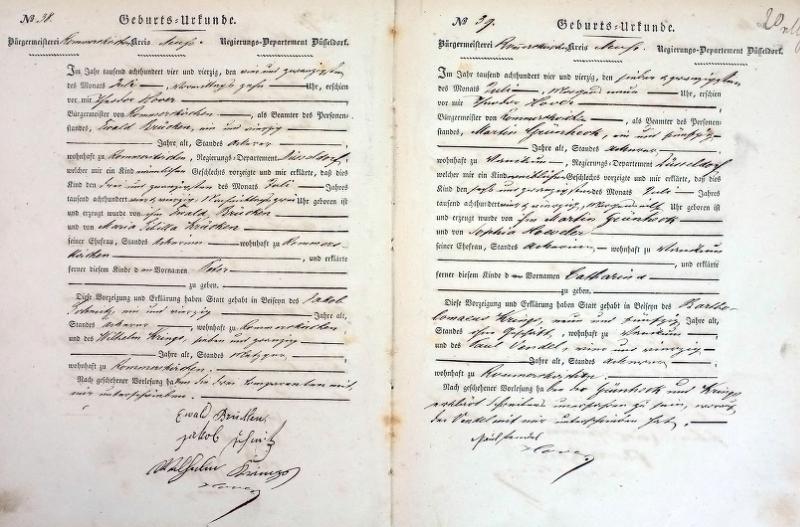 № 38.
Geburts-Urkunde.
Bürgermeisterei Rommerskirchen Kreis Neuss. Regierungs-Departement Düsseldorf.
Im Jahr tausend achthundert vier und vierzig, den vier und zwanzigsten
des Monats Juli, Vormittags zehn Uhr, erschien
vor mir Theodor Hover
Bürgermeister von Rommerskirchen, als Beamter des Personen-
standes, Ewald Brücken, ein und vierzig
Jahre alt, Standes Ackerer
wohnhaft zu Rommerskirchen, Regierungs-Departement Düsseldorf,
welcher mir ein Kind männlichen Geschlechts vorzeigte und mir erklärte, daß dies
Kind den drei und zwanzigsten des Monats Juli Jahres
tausend achthundert vier und vierzig, Nachmittags Uhr geboren ist
und erzeugt wurde von ihm Ewald Brücken
und von Maria Sibilla Brücken
seiner Ehefrau, Standes Ackerinn wohnhaft zu Rommers-
kirchen, und erklärte
ferner diesem Kinde den Vornamen Peter
zu geben.
Diese Vorzeigung und Erklärung haben Statt gehabt in Beiseyn des Jakob
Schmitz, ein und vierzig Jahre alt,
Standes Ackerer, wohnhaft zu Rommerskirchen
und des Wilhelm Krings, sieben und zwanzig
Jahre alt, Standes Metzger,
wohnhaft zu Rommerskirchen.
Nach geschehener Vorlesung haben die drei Comparenten mit
mir unterschrieben.
Ewald Brücken
Jakob Schmitz
Wilhelm Krings
Hover
№ 39.
Geburts-Urkunde.
Bürgermeisterei Rommerskirchen Kreis Neuss. Regierungs-Departement Düsseldorf.
Im Jahr tausend achthundert vier und vierzig, den sieben & zwanzigsten
des Monats Juli, Morgens neun Uhr, erschien
vor mir Theodor Hover
Bürgermeister von Rommerskirchen, als Beamter des Personen-
standes, Martin Grünheck, und fünfzig
Jahre alt, Standes Ackerer,
wohnhaft zu, Regierungs-Departement Düsseldorf
welcher mir ein Kind weiblichen Geschlechts vorzeigte und mir erklärte, daß dies
Kind den sechs und zwanzigsten des Monats Juli Jahres
tausend achthundert vier und vierzig, Morgens Uhr geboren ist
und erzeugt wurde von ihm Martin Grünheck
und von Sophia
seiner Ehefrau, Standes Ackerinn, wohnhaft zu
und erklärte
ferner diesem Kinde den Vornamen Catharina
zu geben.
Diese Vorzeigung und Erklärung haben Statt gehabt in Beiseyn des Bartho-
lomaeus Krings, neun und fünfzig Jahre alt,
Standes ohne Geschäft, wohnhaft zu
und des Paul Vendel, und vierzig
Jahre alt, Standes Ackerer
wohnhaft zu Rommerskirchen
Nach geschehener Vorlesung haben Grünheck und Krings
erklärt Schreibens unerfahren zu sein, worauf
der Vendel mit mir unterschrieben hat.
Paul Vendel
Hover